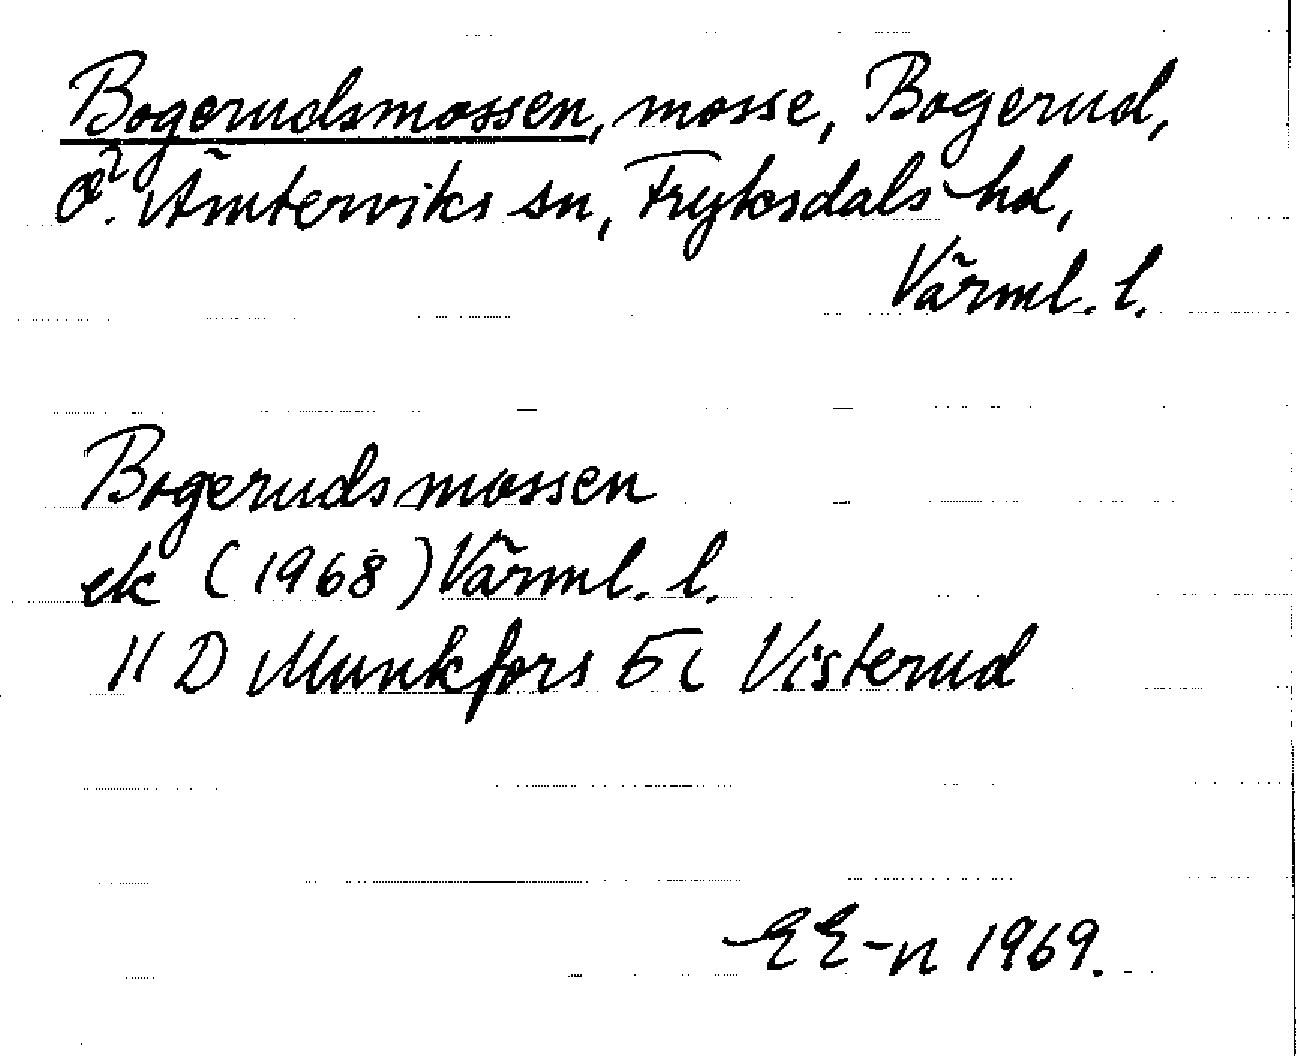 Bogerudsmossen, mosse, Bogerud,
Ö. Ämterviks sn, Fryksdals hd,
Värml. l.
Bogerudsmossen
ek (1968) Värml. l.
11 D Munkfors 5c Visterud
EE-n 1969.